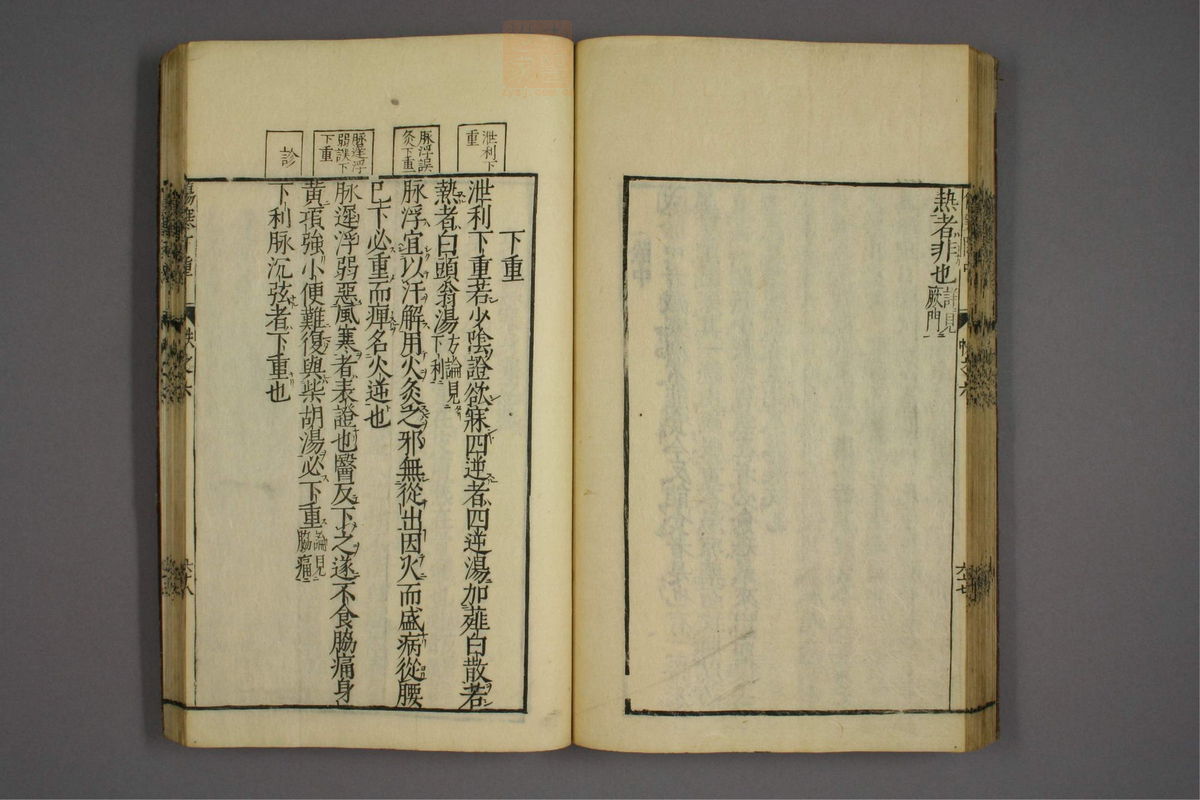 熱者非也詳見厥門
下重
泄利下重若少陰證欲寐四逆者四逆湯加薤白散若
熱者白頭翁湯方論見下利
脉浮宜以汗解用火灸之邪無從出因火而盛病從腰
已下必重而痺名火逆也
脉遲浮弱惡風寒者表證也醫反下之遂不食脇痛身
黃項強小便難復與柴胡湯必下重論見脇痛
下利脉沉弦者下重也
泄利下重
脉浮誤灸下重
脉遲浮弱誤下下重
診